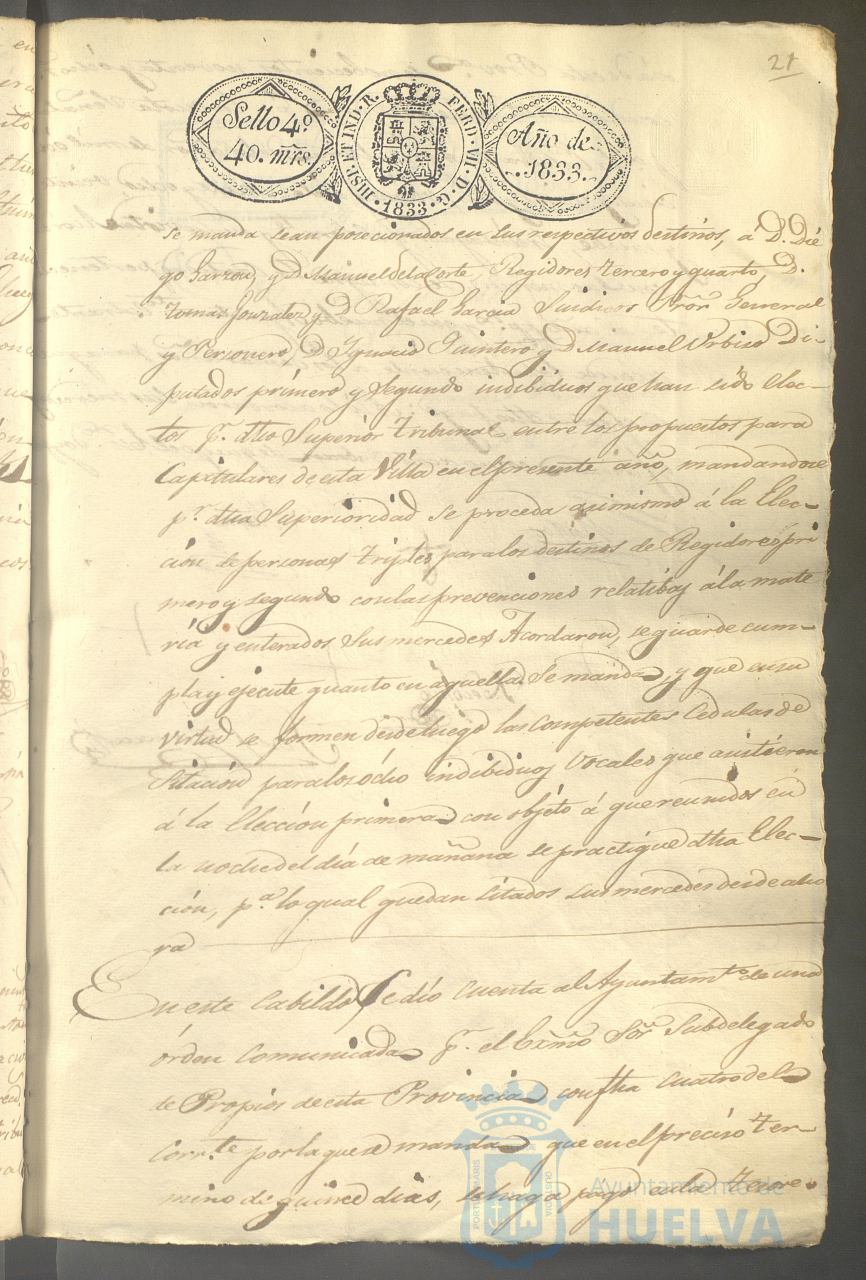 21
Sello 4º
40. mrs.
HISP. ET IND. R. FERD. VII. D. G.
1833
Año de
1833.
se manda sean posecionados en sus respectivos destinos, á D. Dié
go Garzon, y D Manuel de la Corte, Regidores tercero y quarto, D.
Tomas Gonzalez y D Rafael Garcia Sindicos Pror. General
y Personero, D Ignacio Quintero, y D Manuel Orbiso Di-
putados primero y segundo indibiduos que han sido elec-
tos pr. dho Superior tribunal entre los propuestos para
Capitulares de esta Villa en el presente año, mandandose
pr. dha Superioridad se proceda asimismo á la Elec-
ción de personas triples para los destinos de Regidores pri
mero y segundo con las prevenciones relatibas á la mate
ria y enterados Sus mercedes Acordaron, se guarde cum-
pla y ejecute quanto en aquella se manda, y que en su
virtud se formen desde luego las competentes Cedulas de
Sitación para los ócho indibiduos Vocales que asistieron
á la Elección primera con objeto á que reunidos en
la noche del día de mañana se practique dha Elec-
ción, pa. lo qual quedan sitados sus mercedes desde aho
ra
En este Cabildo Se dió cuenta al Ayuntamto. de una
órden comunicada pr. el Exmo Sor Subdelegado
de Propios de esta Provincia con fha cuatro del
Corrte. por la que se manda que en el preciso ter-
mino de quince dias, se haga pago en la tesore-
Ayuntamiento de
HUELVA